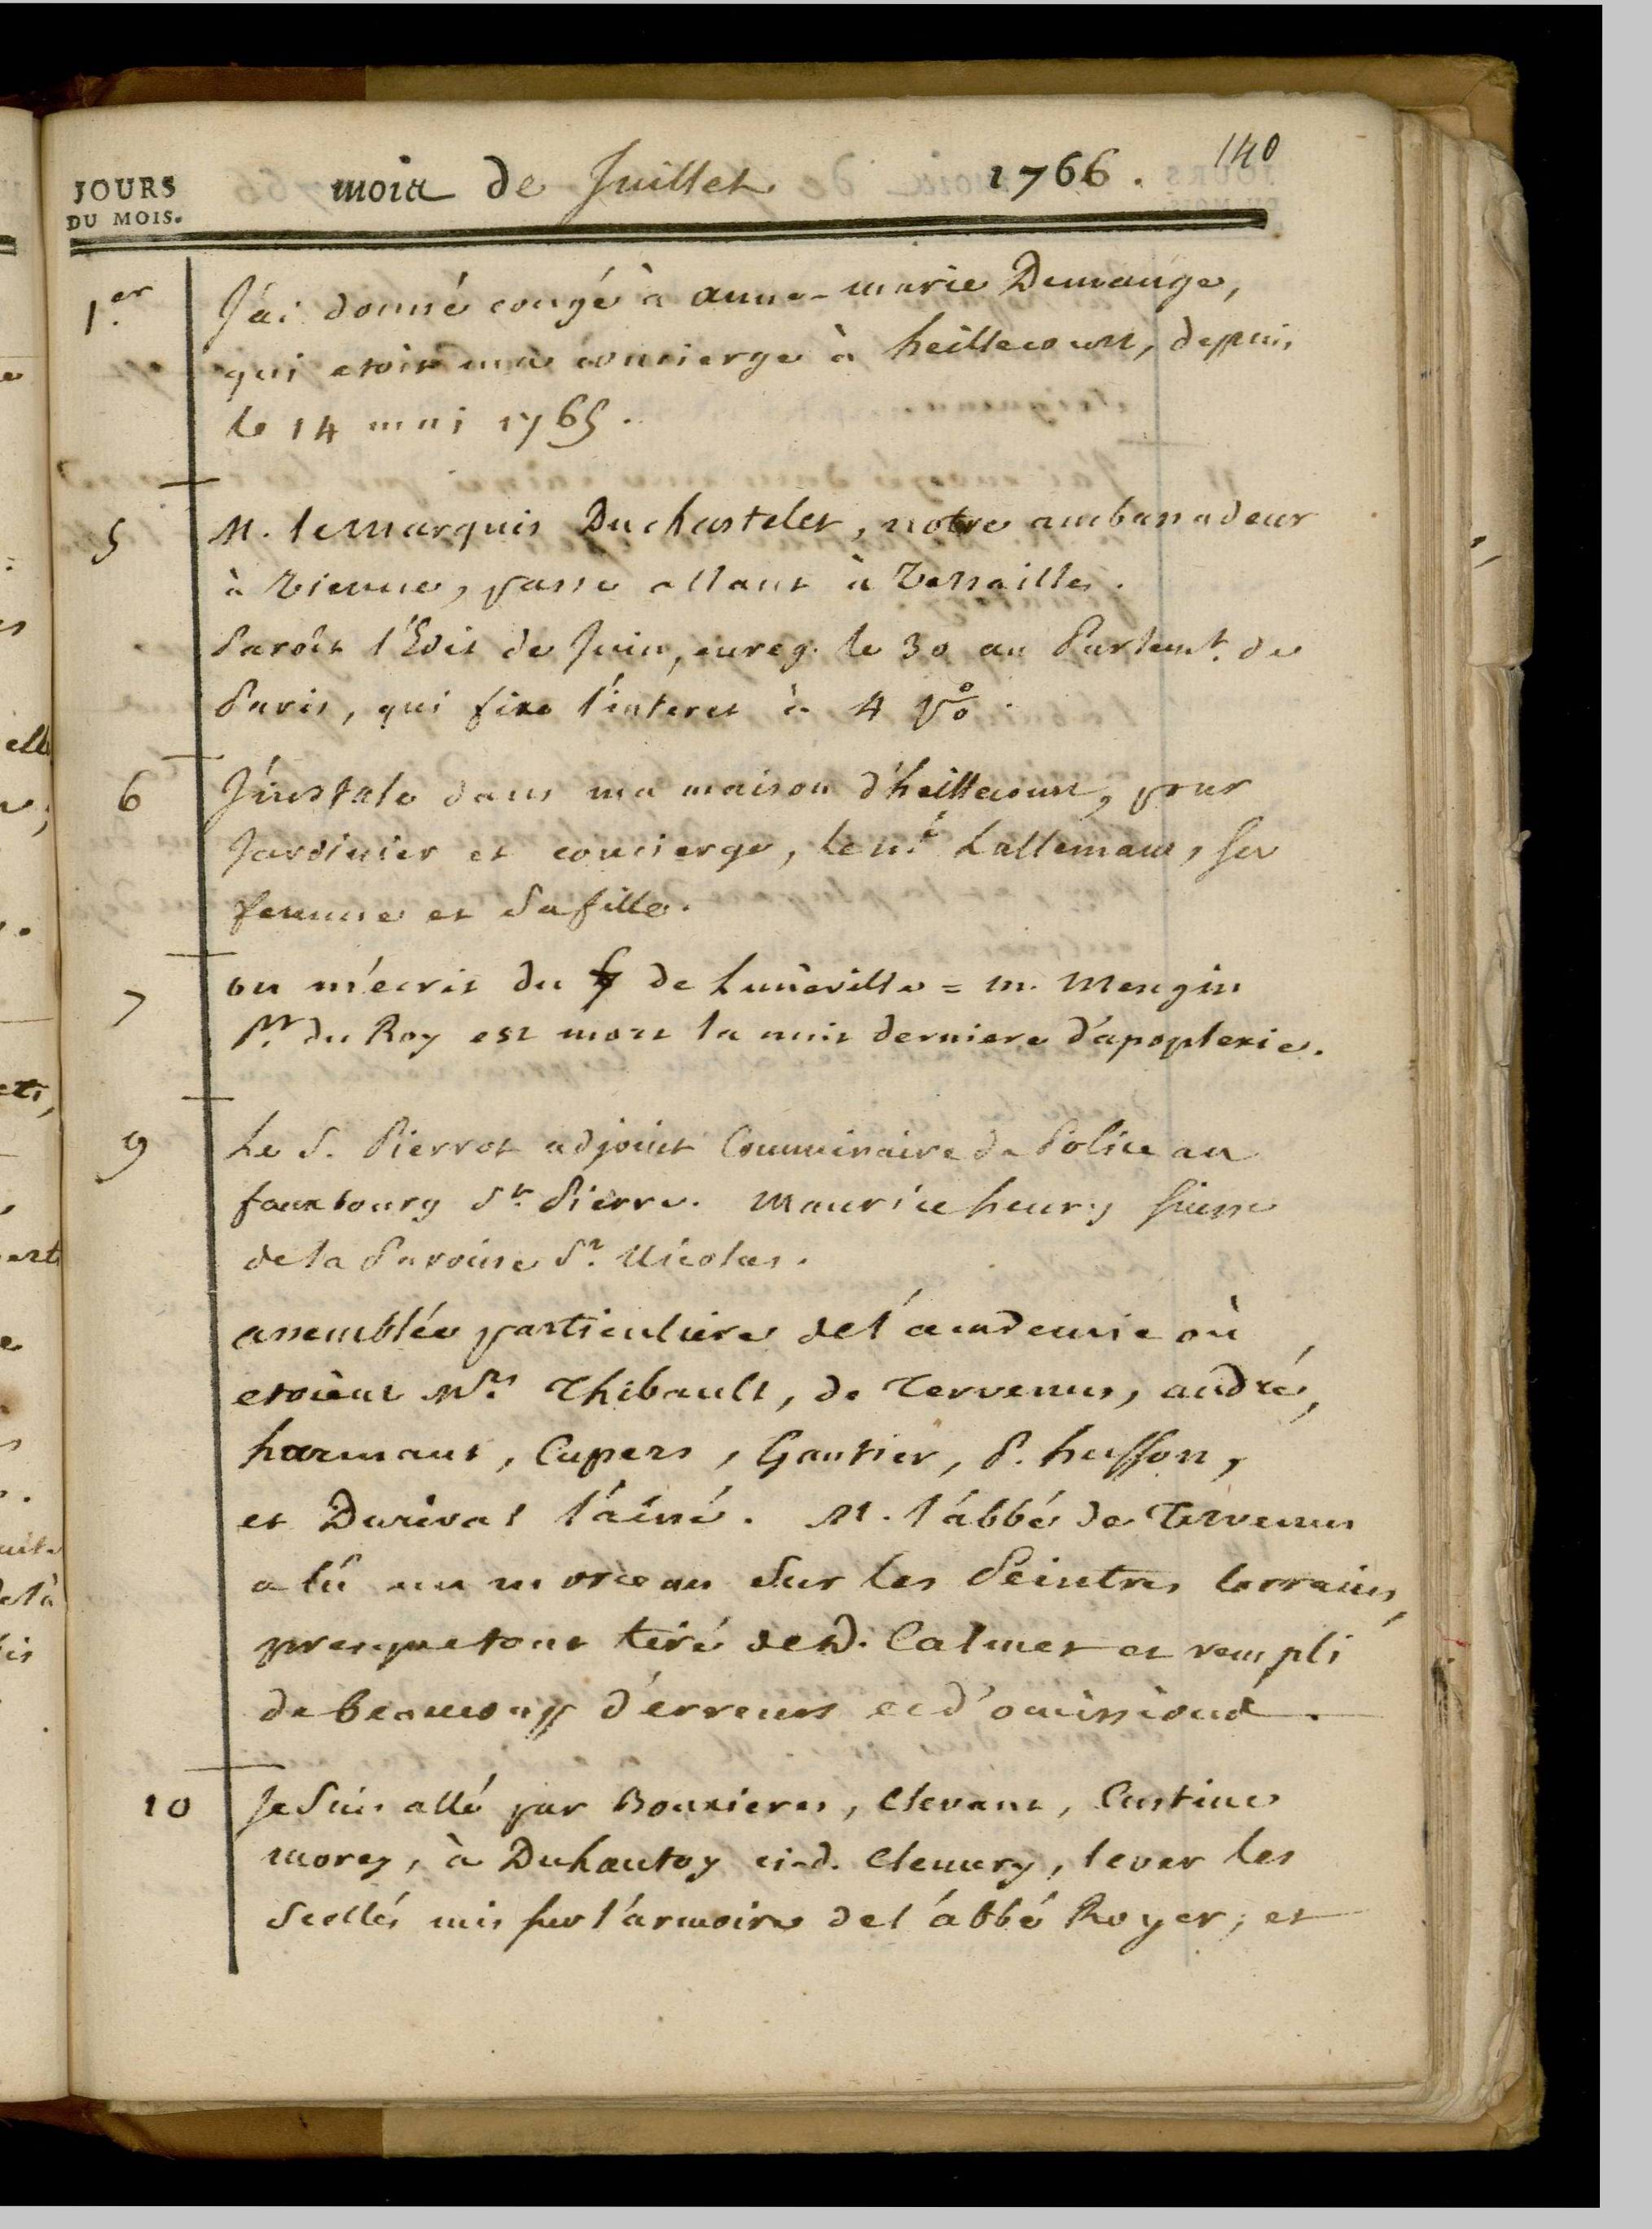 140
JOURS
DU MOIS.
mois de Juillet 1766.
1.er J'ai donné congé à anne-marie Demange,
qui etoit ma concierge à heillecourt, depuis
le 14 mai 1765.
5 M. le Marquis Duchastelet, notre ambassadeur
à Vienne, passe allant à Versailles.
Paroît l'Edit de Juin, enreg. le 30 au Parlemt. de
Paris, qui fixe l'interet à 4 p%.
6 J'instale dans ma maison d'heillecourt, pour
Jardinier et concierge, le né Lallemant, sa
femme et sa fille.
7 on m'écrit du de Lunéville = m. Mengin
pr. du Roy est mort la nuit derniere d'apoplexie.
9 Le S. Pierrot adjoint Commissaire de Police au
fauxbourg St. Pierre. Maurice henry Suisse
de la Paroisse St. Nicolas.
assemblée particuliere de l'academie où
etoient Mrs. Thibault, de Tervenus, andré,
harmant, Cupers, Gautier, P. husson,
et Durival l'aîné. M. l'abbé de Tervenus
a lû un morceau sur les Peintres lorrains,
presque tout tiré de D. Calmet et rempli
de beaucoup d'erreurs et d'omissions.
10 Je suis allé par Bouxieres, Clevant, Custines
morey, à Duhautoy ci-d. Clemery, lever les
scellés mis sur l'armoire de l'abbé Royer; et